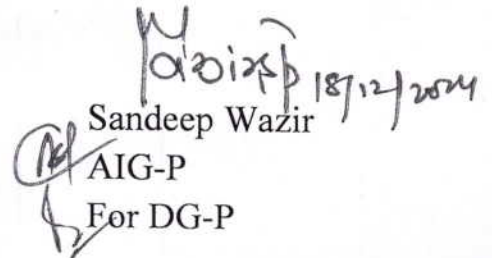 18/12/2024
Sandeep Wazir
AIG-P
For DG-P